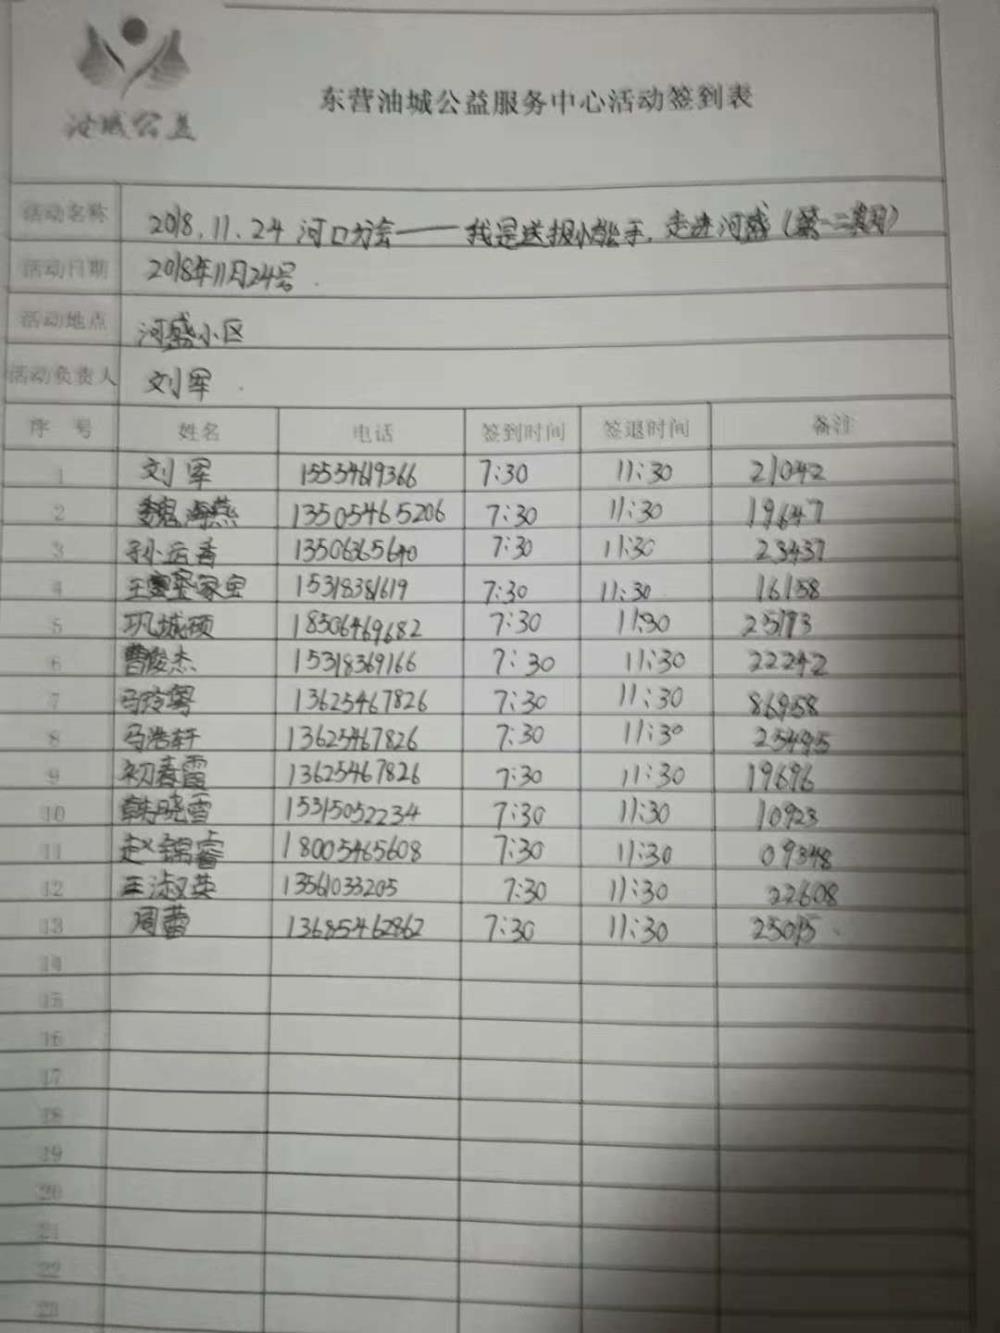 油城公益
东营油城公益服务中心活动签到表
活动名称 2018.11.24 河口分会——我是送报小能手,走进河盛(第一二期)
活动日期 2018年11月24号
活动地点 河盛小区
活动负责人 刘军
序 号 姓名 电话 签到时间 签退时间 备注
1 刘军 15554619366 7:30 11:30 21042
2 魏海燕 13505465206 7:30 11:30 19647
3 孙云香 13506365640 7:30 11:30 23437
4 王家宝 15318381619 7:30 11:30 16158
5 巩城硕 18506469682 7:30 11:30 25173
6 曹俊杰 15318369166 7:30 11:30 22242
7 马玲粤 13625467826 7:30 11:30 86958
8 马浩轩 13625467826 7:30 11:30 25495
9 初春霞 13625467826 7:30 11:30 19696
10 韩晓雪 15315052234 7:30 11:30 10923
11 赵锦睿 18005465608 7:30 11:30 09348
12 王淑英 13561033205 7:30 11:30 22608
13 周蕾 13685462862 7:30 11:30 25015
14
15
16
17
18
19
20
21
22
23